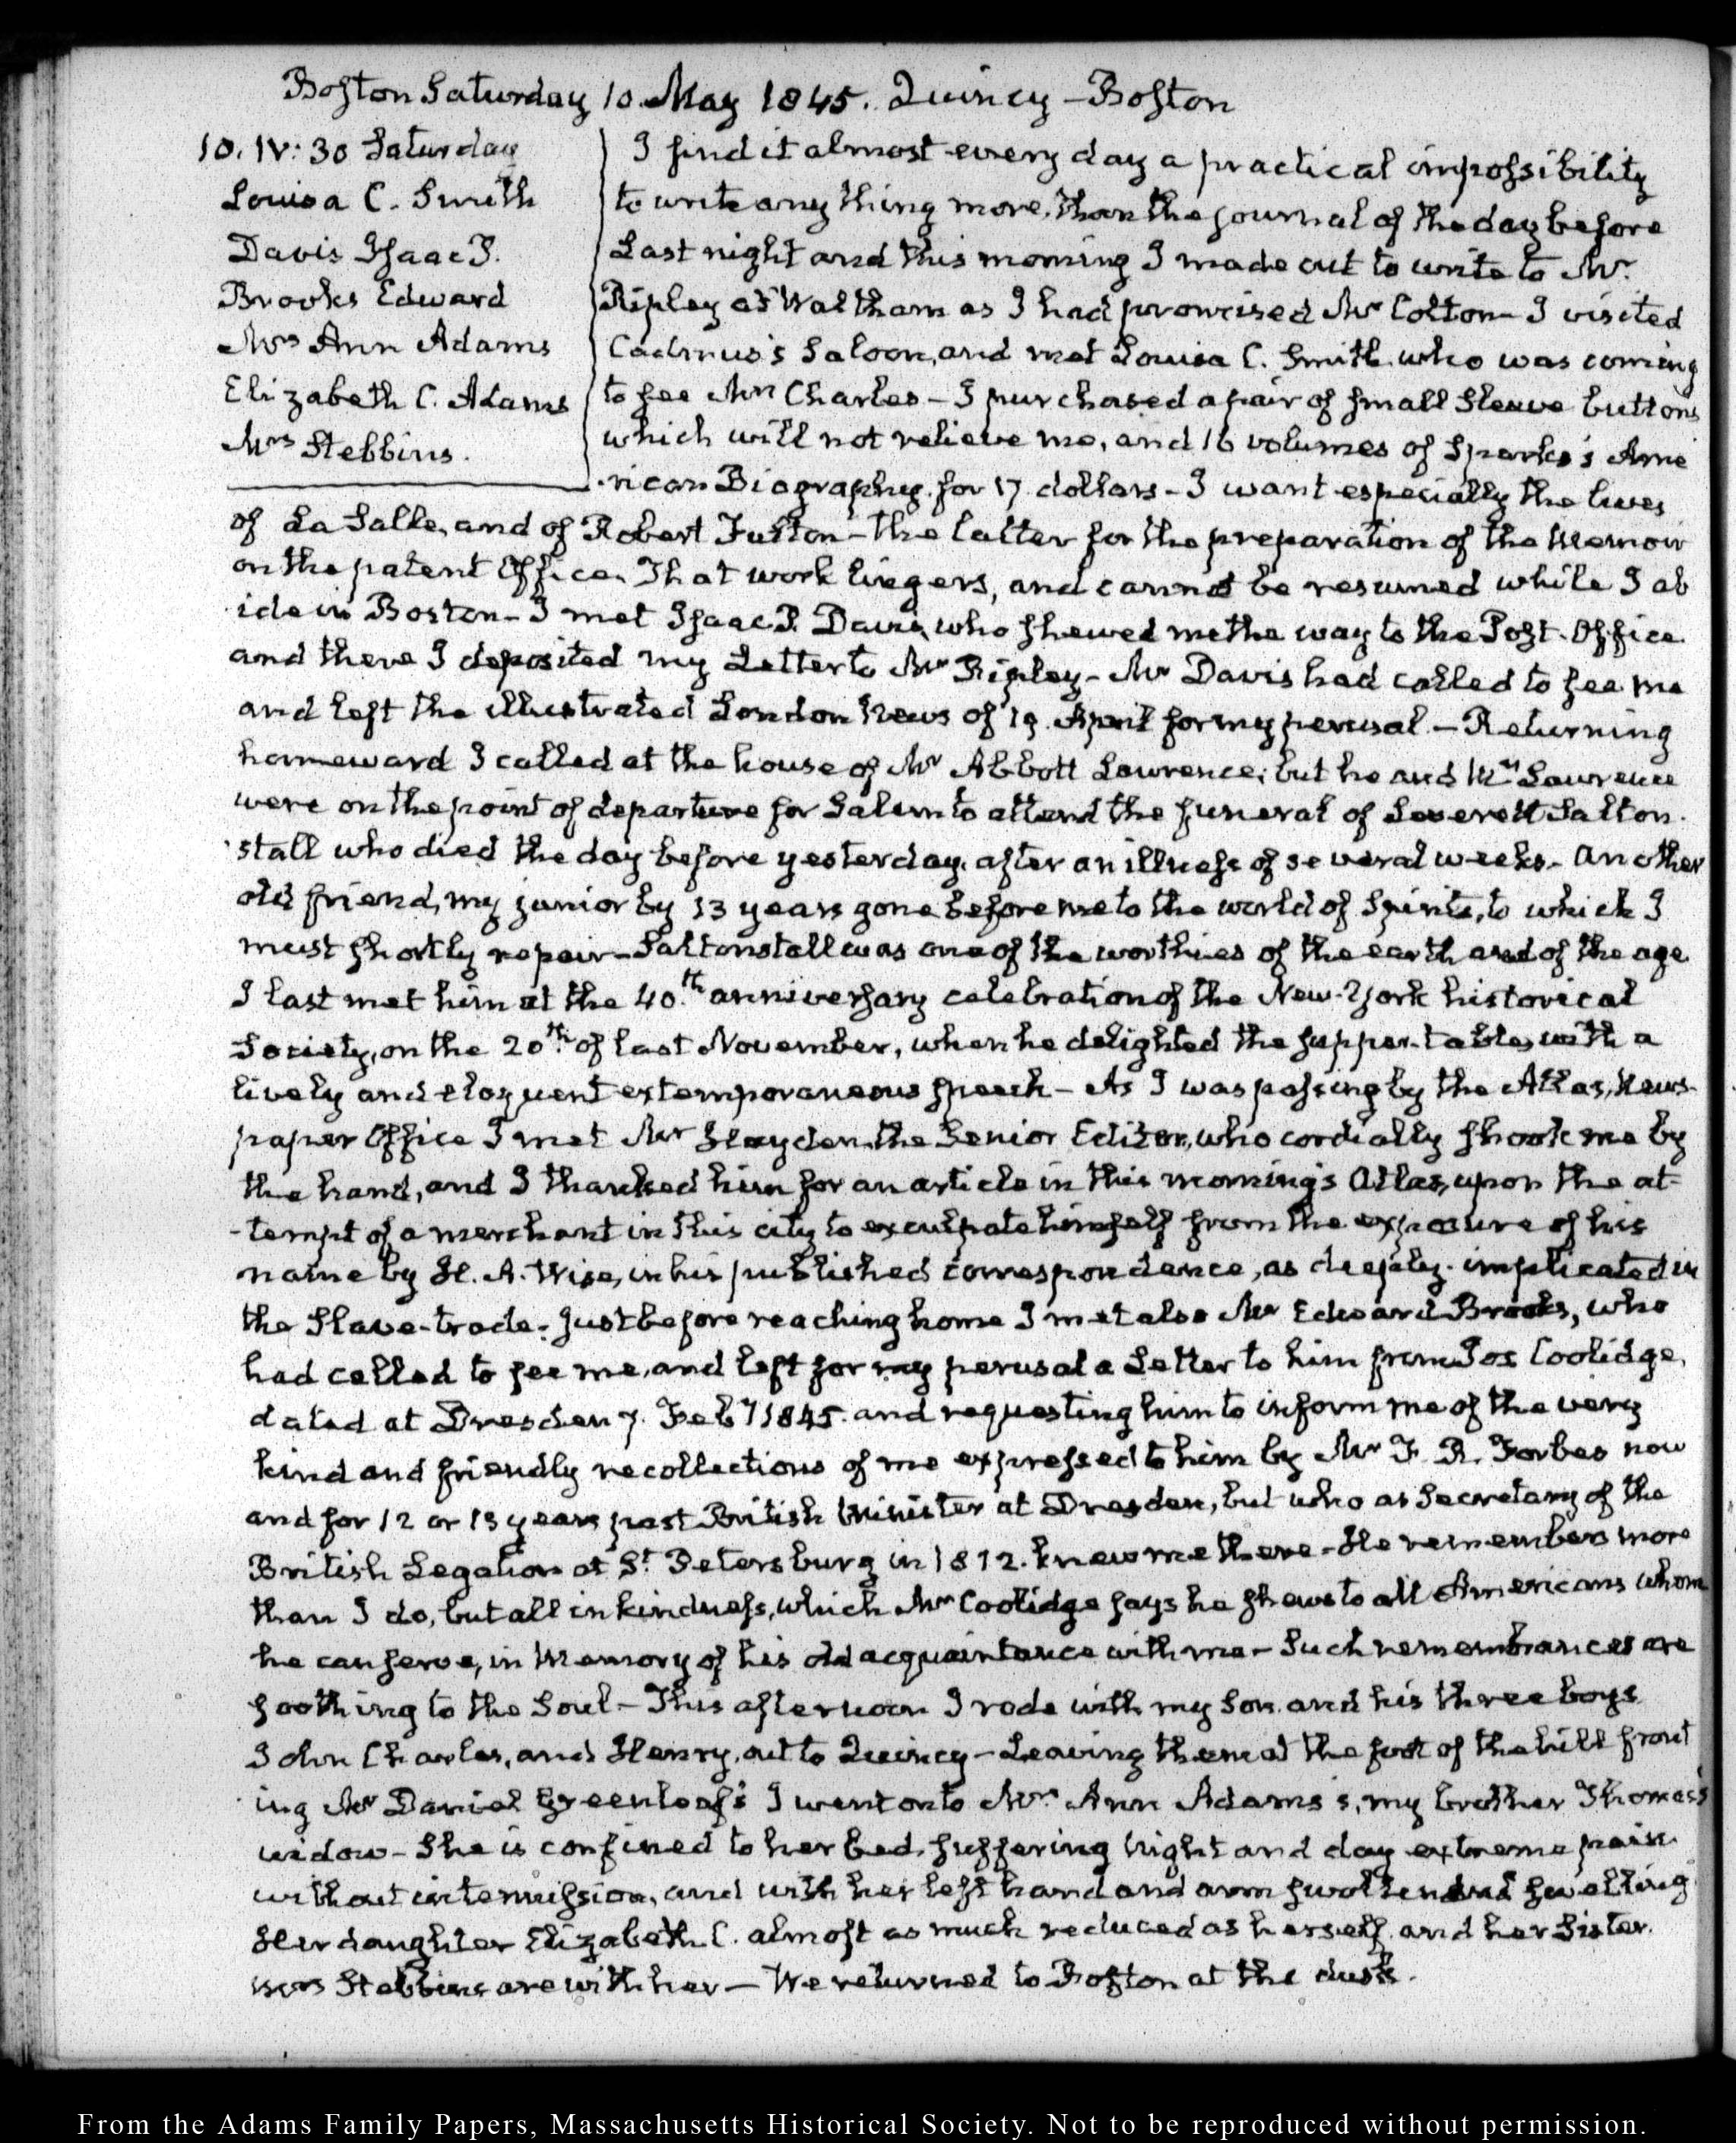 Boston Saturday 10. May 1845. Quincy – Boston
10. IV: 30 Saturday
Louisa C. Smith
Davis Isaac P.
Brooks Edward
Mrs Ann Adams
Elizabeth C. Adams
Mrs Stebbins.
I find it almost every day a practical impossibility
to write any thing more, than the journal of the day before
Last night and this morning I made out to write to Mr
Ripley at Waltham as I had promised Mr Colton – I visited
Cadmus's Saloon, and met Louisa C. Smith who was coming
to see Mrs Charles – I purchased a pair of small sleeve buttons
which will not relieve me, and 16 volumes of Sparks's Ame
-rican Biography for 17 dollars – I want especially the lives
of La Salle, and of Robert Fulton – the latter for the preparation of the Memoir
on the patent Office. That work lingers, and cannot be resumed while I ab
ide in Boston – I met Isaac P. Davis, who shewed me the way to the Post-Office
and there I deposited my Letter to Mr Ripley – Mr Davis had called to see me
and left the illustrated London News of 19. April for my perusal. – Returning
homeward I called at the house of Mr Abbott Lawrence; but he and Mrs Lawrence
were on the point of departure for Salem to attend the funeral of Leverett Salton-
stall who died the day before yesterday, after an illness of several weeks – another
old friend, my junior by 13 years gone before me to the world of Spirits, to which I
must shortly repair – Saltonstall was one of the worthies of the earth and of the age
I last met him at the 40.th anniversary celebration of the New-York historical
Society, on the 20th of last November, when he delighted the supper-table, with a
lively and eloquent extemporaneous speech – As I was passing by the Atlas, News-
paper Office I met Mr Hayden, the Senior Editor, who cordially shook me by
the hand, and I thanked him for an article in this morning's Atlas, upon the at-
-tempt of a merchant in this city to exculpate himself from the exposure of his
name by H. A. Wise, in his published correspondence, as deeply implicated in
the Slave-trade. Just before reaching home I met also Mr Edward Brooks, who
had called to see me, and left for my perusal a Letter to him from Jos Coolidge,
dated at Dresden 7. Feby 1845. and requesting him to inform me of the very
kind and friendly recollections of me expressed to him by Mr F. R. Forbes now
and for 12 or 13 years past British Minister at Dresden, but who as Secretary of the
British Legation at St Petersburg in 1812. knew me there – He remembers more
than I do, but all in kindness, which Mr Coolidge says he shews to all Americans whom
he can serve, in Memory of his old acquaintance with me – Such remembrances are
soothing to the Soul – This afternoon I rode with my Son and his three boys
John Charles, and Henry, out to Quincy – Leaving them at the foot of the hill front
ing Mr Daniel Greenleaf's I went on to Mrs Ann Adams's, my brother Thomas's
widow – She is confined to her bed, suffering night and day extreme pain
without intermission, and with her left hand and arm swollen and swelling
Her daughter Elizabeth C. almost as much reduced as herself, and her Sister
Mrs Stebbins are with her – We returned to Boston at the dusk.
From the Adams Family Papers, Massachusetts Historical Society. Not to be reproduced without permission.